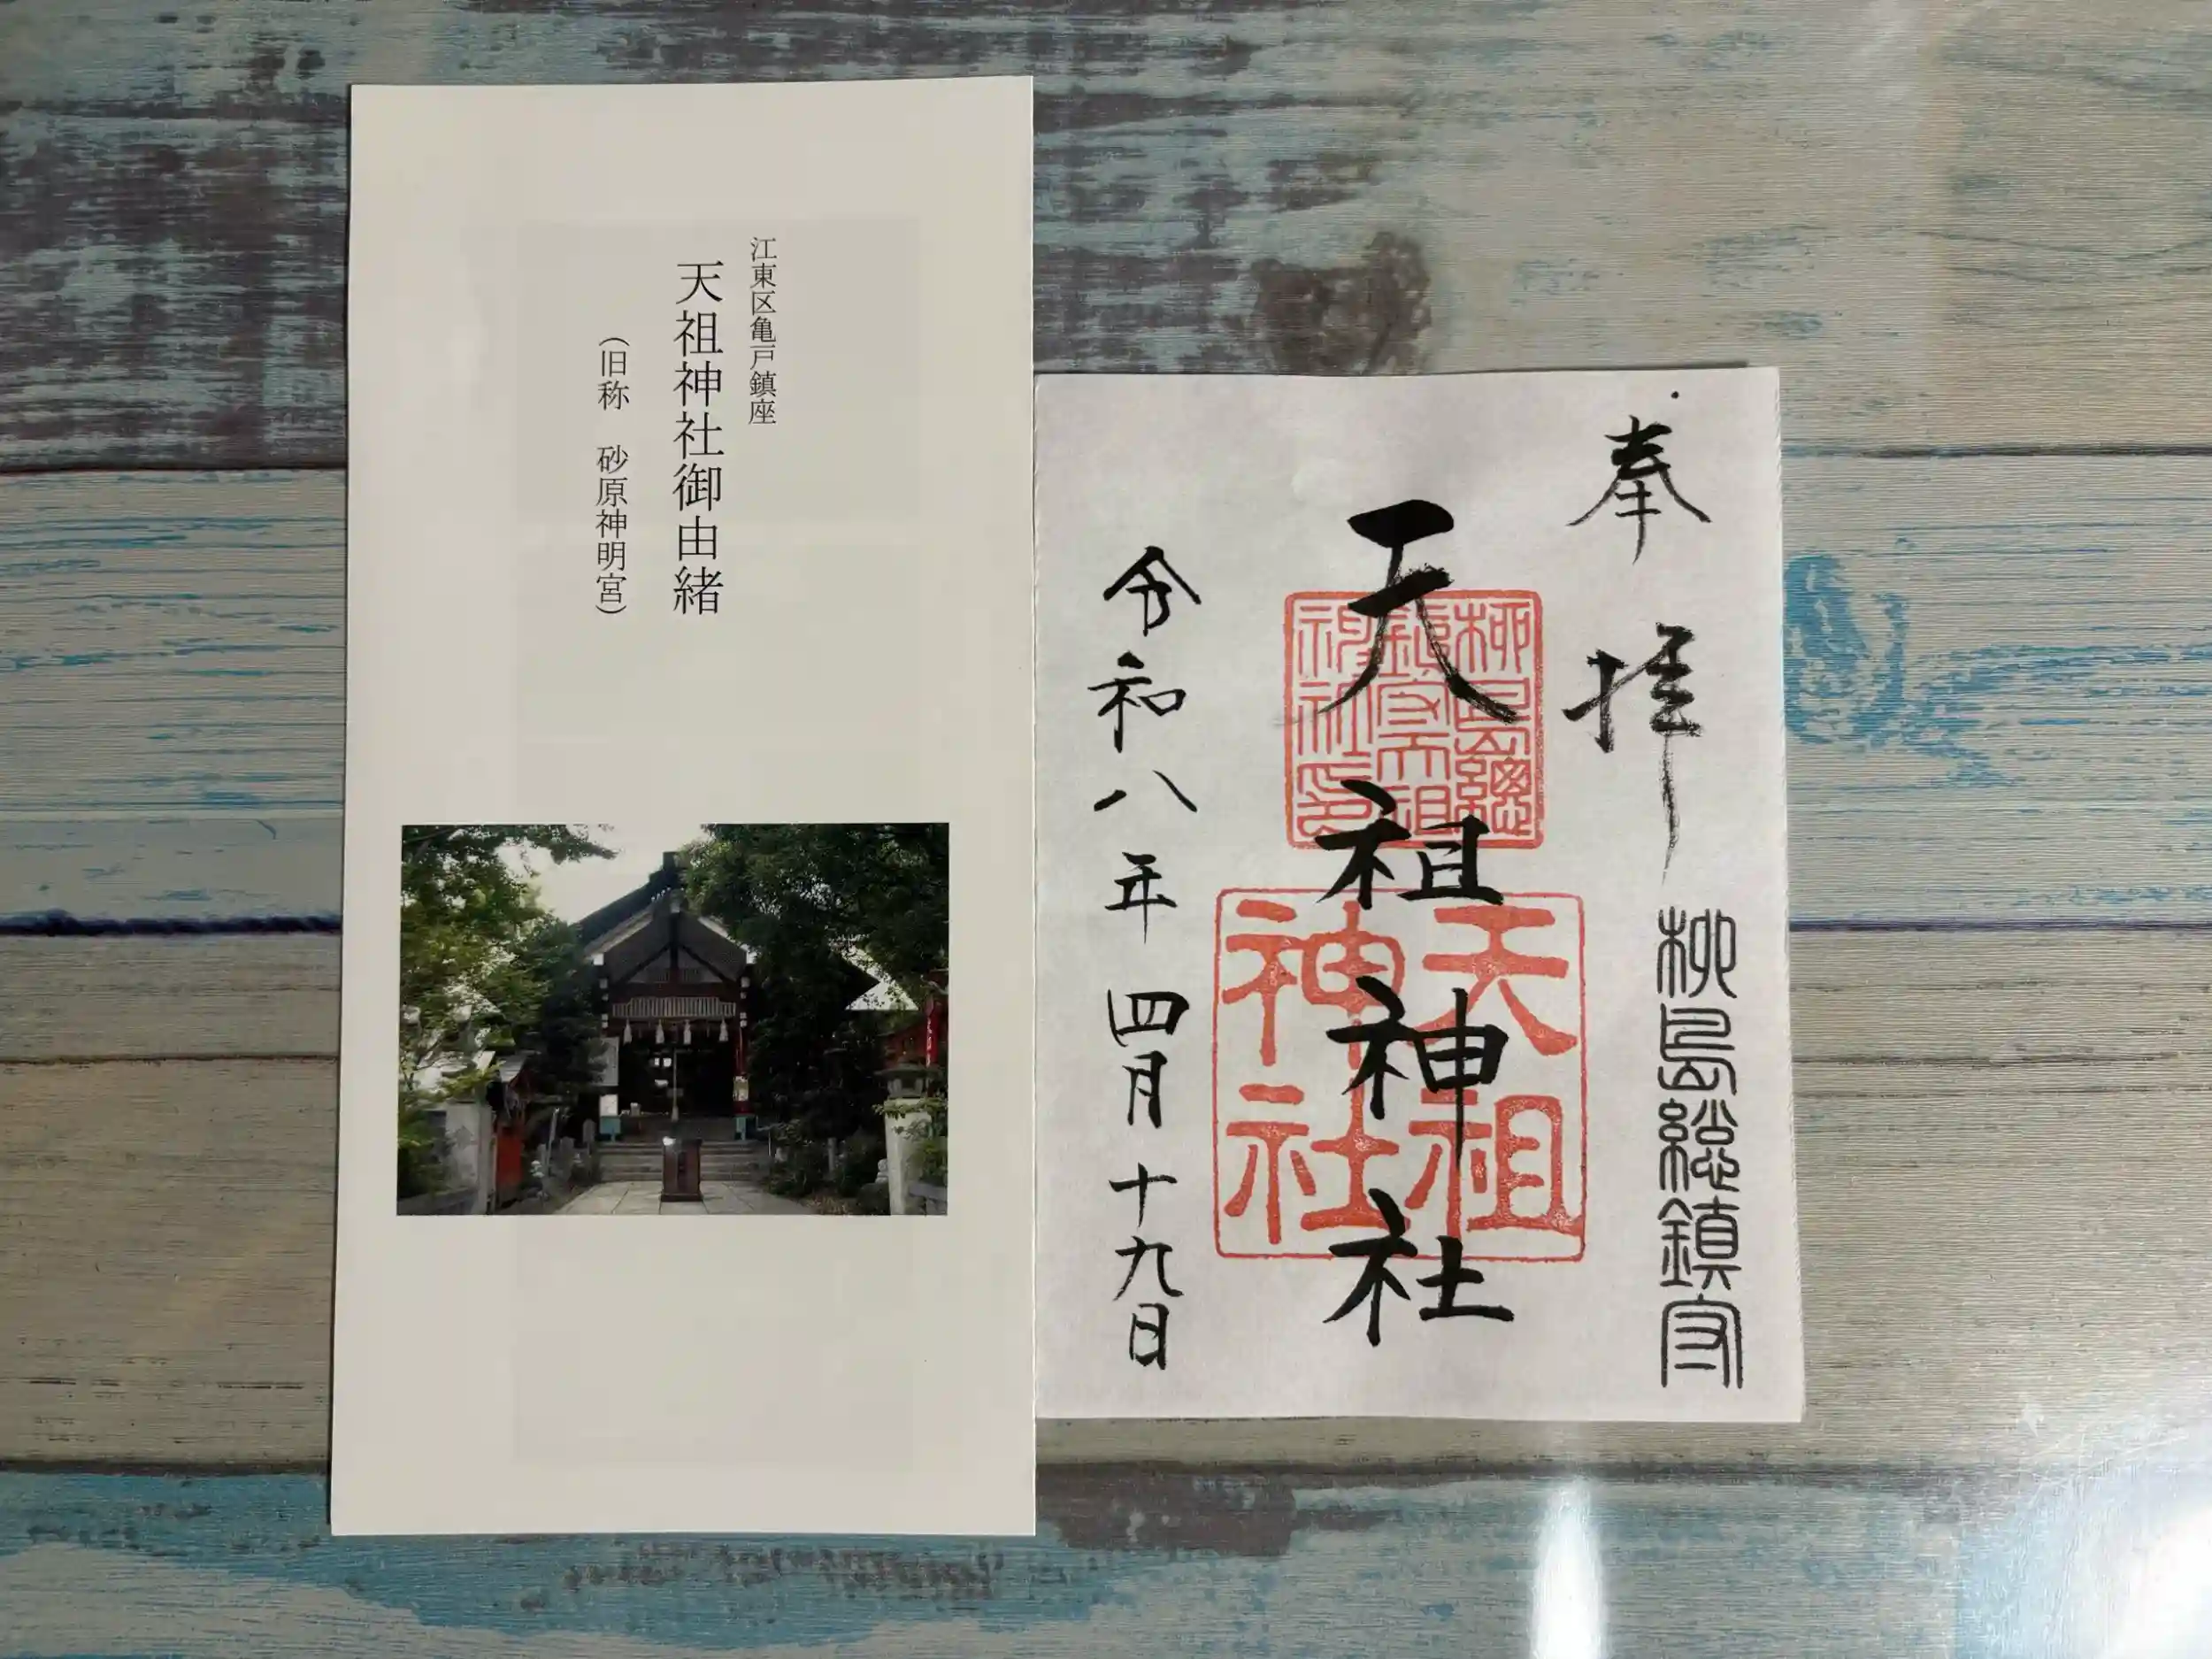 江東区亀戸鎮座
天祖神社御由緒
（旧称　砂原神明宮）
奉拝
柳島総鎮守
天祖神社
柳島總
鎮守天祖
神社印
天祖
神社
令和八年四月十九日